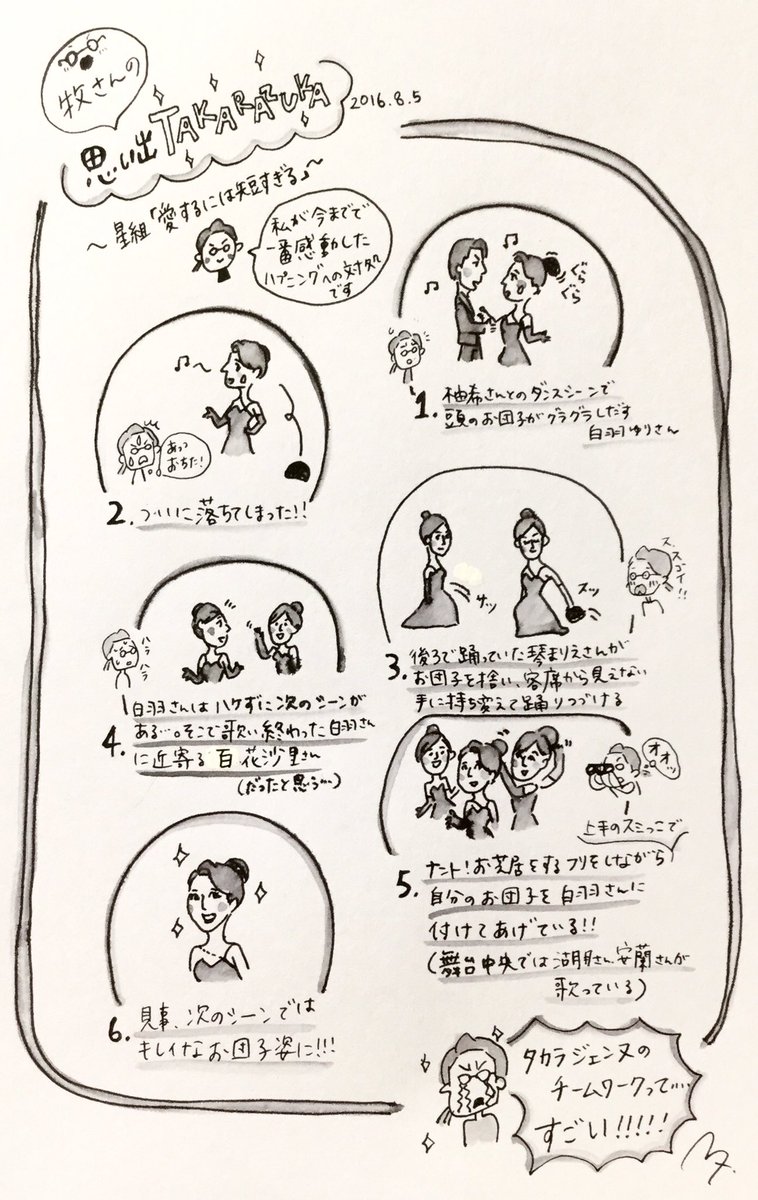 牧さんの
思い出TAKARAZUKA
2016.8.5
〜星組「愛するには短すぎる」〜
私が今までで
一番感動した
ハプニングへの対処
です
♪
♫
ぐら
ぐら
1. 柚希さんとのダンスシーンで
頭のお団子がグラグラしだす
白羽ゆりさん
♫〜
あっ
おちた!
2. ついに落ちてしまった!!
サッ
スッ
ス、
スゴイ!!
3. 後ろで踊っていた琴まりえさんが
お団子を捨い、客席から見えない
手に持ち変えて踊りつづける
ハラ
ハラ
4. 白羽さんはハケずに次のシーンが
ある…。そこで歌い終わった白羽さん
に近寄る百花沙里さん
(だったと思う…)
オオッ
上手のスミっこで
5. ナント!お芝居をするフリをしながら
自分のお団子を白羽さんに
付けてあげている!!
(舞台中央では湖月さん、安蘭さんが
歌っている)
6. 見事、次のシーンでは
キレイなお団子姿に!!!
タカラジェンヌの
チームワークって……
すごい!!!!!